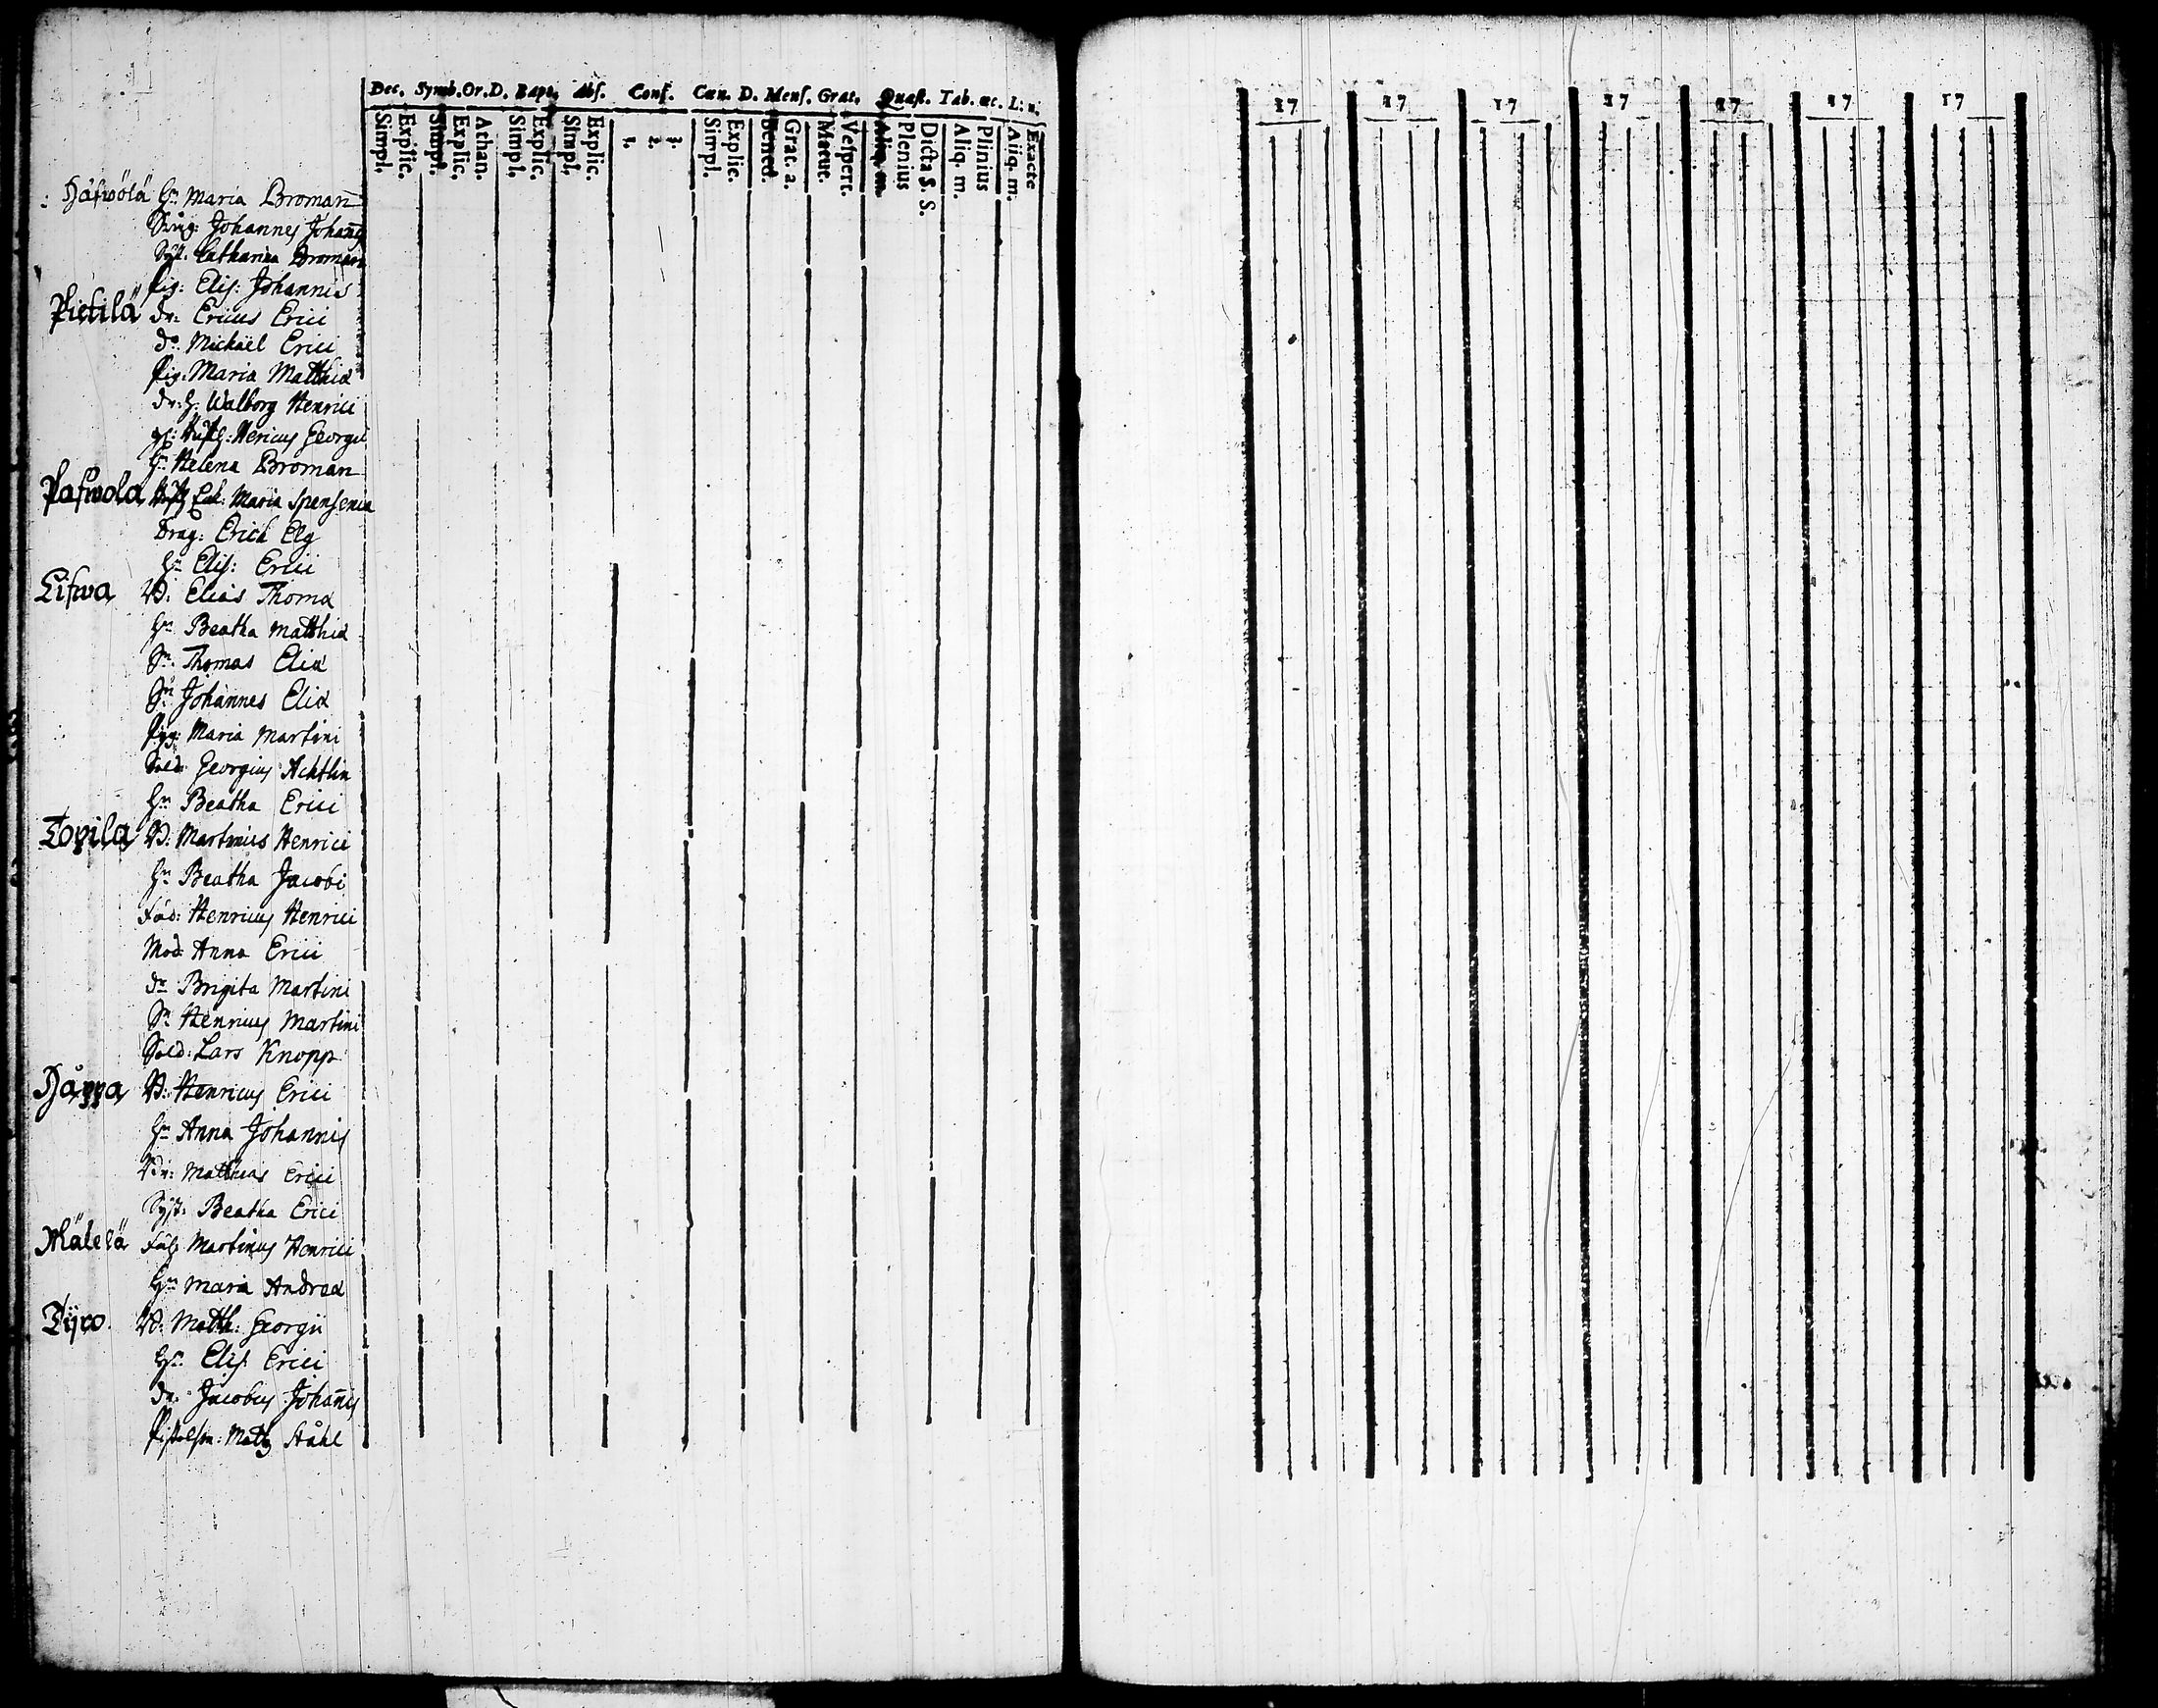 Dec. Symb. Or. D. Bapt. Abs. Conf. Cæn. D. Mens. Grat. Quæst. Tab. æc. L: n.
Simpl. Explic. Simpl. Explic. Athan. Simpl. Explic. Simpl. Explic. 1. 2. 3. Simpl. Explic. Bened. Grat. a. Matut. Vespert. Aliq. m. Plenius Dicta S. S. Aliq. m. Plinius Aliq. m. Exacte
17 17 17 17 17 17 17
Hn Maria Broman
Johannes Johan̄s
Syst: Catharina Broman
Pig: Elis: Johannis
Pietilä Dr: Ericus Erici
Dr Michael Erici
Pig: Maria Matthiæ
Dr: H: Walborg Henrici
Hericus Georgii
Hn Helena Broman
Pafwola Maria Spensenia
Drag: Erick Elg
Hn Elis: Erici
Lifwa Vd: Elias Thomæ
Hn Beatha Matthiæ
Sn Thomas Eliæ
Sn Johannes Eliæ
Pig: Maria Martini
Sold: Georgius Achtlin
Hn Beatha Erici
Topila Vd: Martinus Henrici
Hn Beatha Jacobi
Fad: Henricus Henrici
Mod Anna Erici
Dr Brigita Martini
Sn Henricus Martini
Sold: Lars Knopp
Happa Vd: Henricus Erici
Hn Anna Johannis
Mathias Erici
Syst: Beatha Erici
Mälelä Martinus Henrici
Hn Maria Andreæ
Tijro Vd: Matth: Georgii
Hn Elis: Erici
Dr: Jacobus Johan̄is
Matts Ståhl